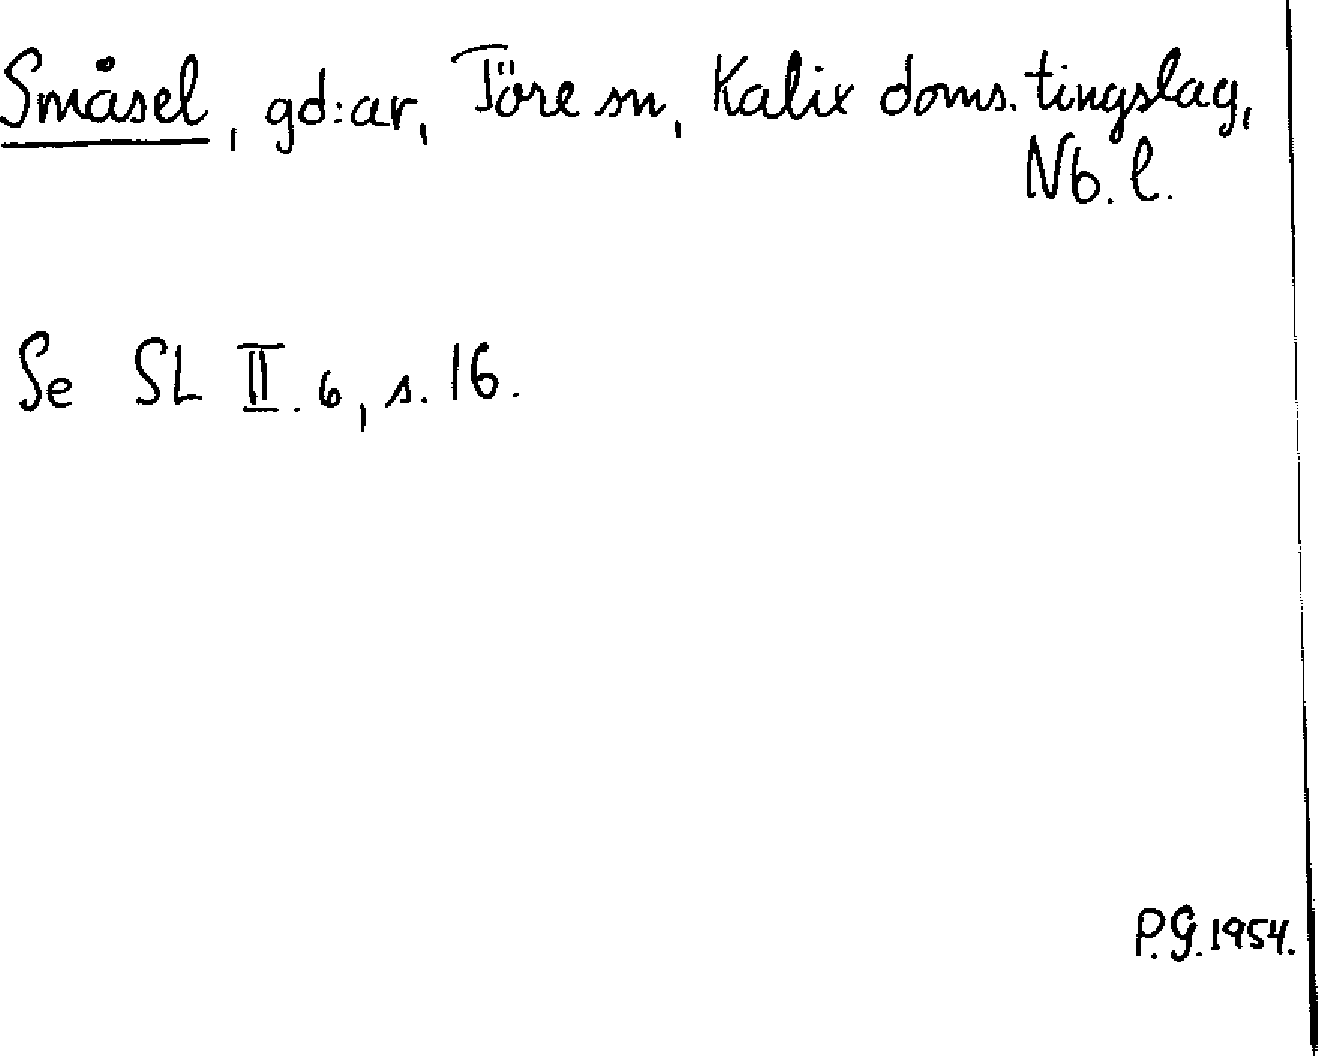 Småsel, gd:ar, Töre sn, Kalix doms. tingslag,
Nb. l.
Se SL II. 6, s. 16.
P.G. 1954.